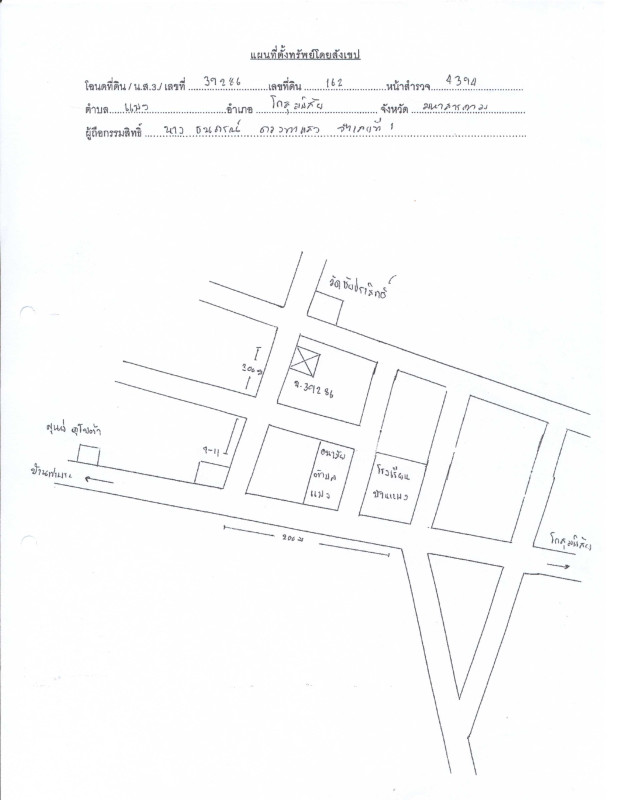 แผนที่ตั้งทรัพย์โดยสังเขป
โฉนดที่ดิน / น.ส.3./ เลขที่ 39286 เลขที่ดิน 162 หน้าสำรวจ 4394
ตำบล แพง อำเภอ โกสุมพิสัย จังหวัด มหาสารคาม
ผู้ถือกรรมสิทธิ์ นาง ที่ 1
วัดชัยประสิทธิ์
200 ม
ฉ.39286
ศูนย์ โตโยต้า
7-11
อนามัย
ตำบล
แพง
โรงเรียน
บ้านแพง
200 ม
โกสุมพิสัย